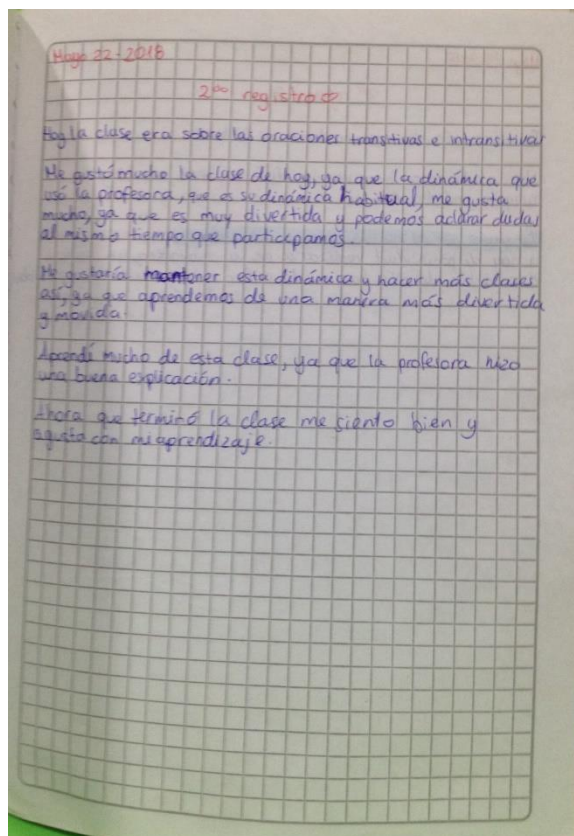 Mayo 22-2018
2do registro
Hoy la clase era sobre las oraciones transitivas e intransitivas
Me gustó mucho la clase de hoy, ya que la dinámica que
usó la profesora, que es su dinámica habitual, me gusta
mucho, ya que es muy divertida y podemos aclarar dudas
al mismo tiempo que participamos.
Me gustaría mantener esta dinámica y hacer más clases
así, ya que aprendemos de una manera más divertida
y movida.
Aprendí mucho de esta clase, ya que la profesora hizo
una buena explicación.
Ahora que terminó la clase me siento bien y
agusto con mi aprendizaje.